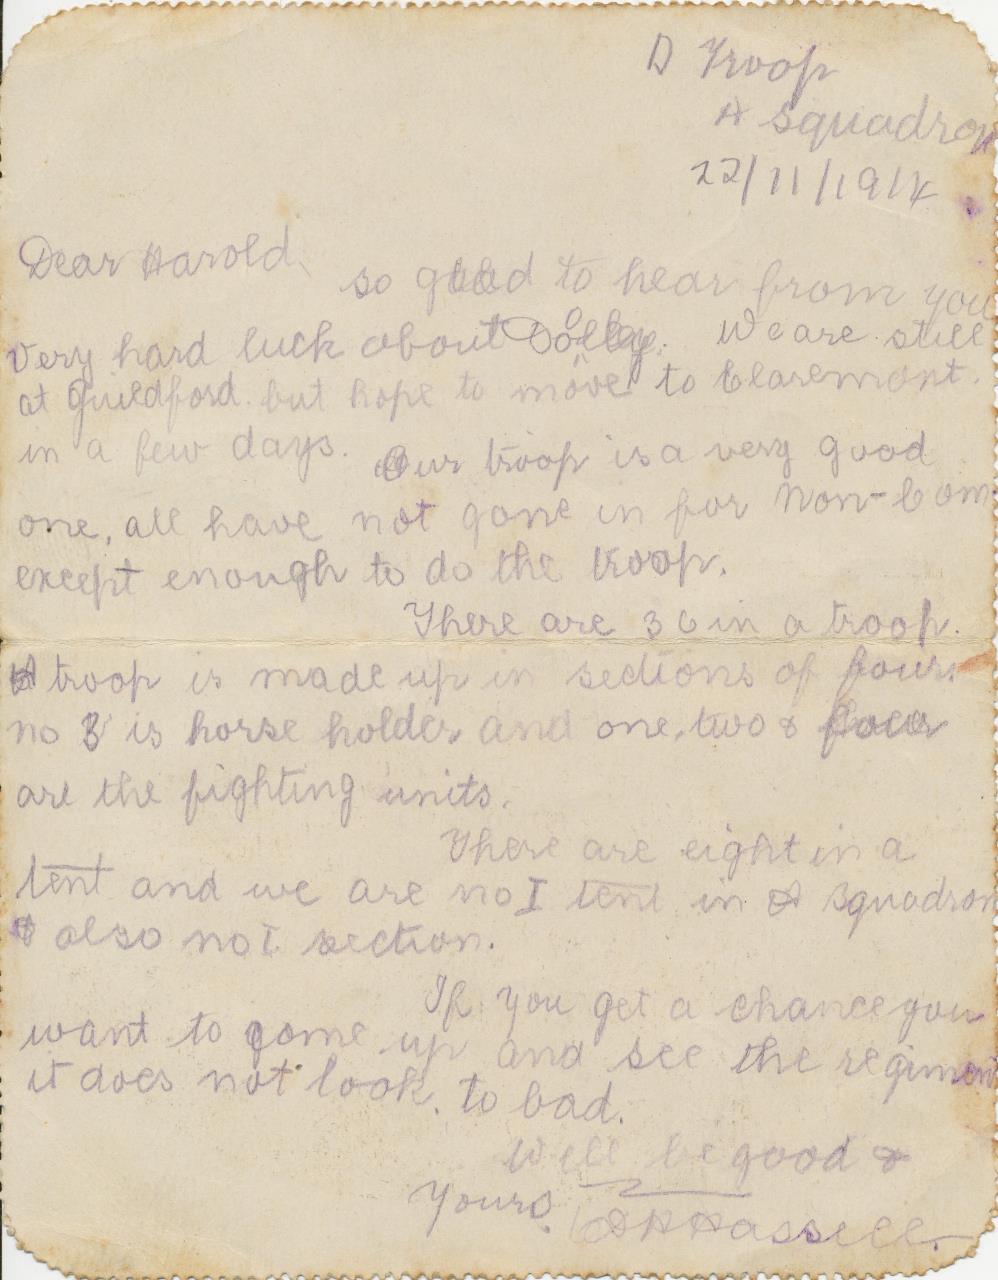 D Troop
A Squadron
22/11/1914
Dear Harold.
so glad to hear from you
very hard luck about Dolly. We are still
at Guildford. but hope to move to Claremont.
in a few days. Our troop is a very good
one, all have not gone in for Non-Com
except enough to do the troop.
There are 36 in a troop.
A troop is made up in sections of fours
no 3 is horse holder, and one, two & four
are the fighting units.
There are eight in a
tent and we are no I tent in A Squadron
& also no I section.
If you get a chance you
want to come up and see the regiment
it does not look. to bad.
Well be good &
Yours.
Hassell.